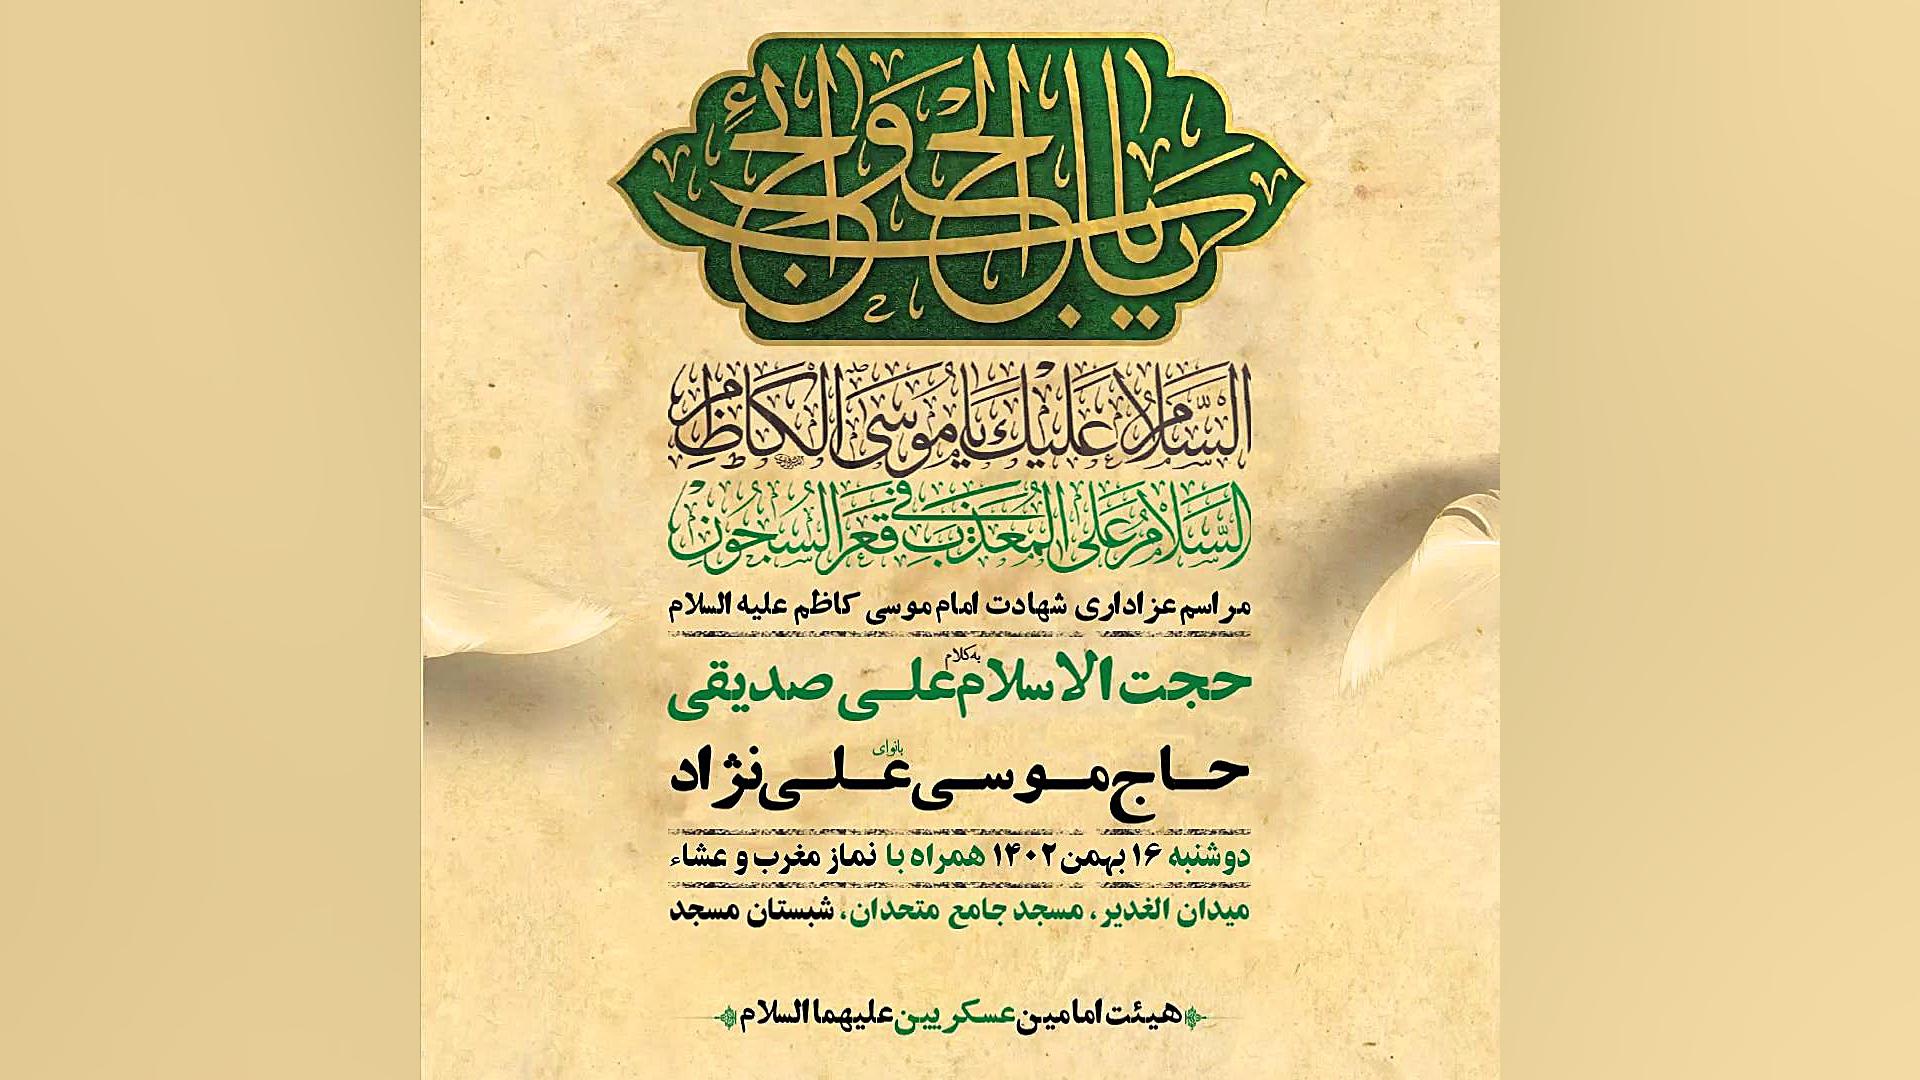 یا باب الحوائج
السَّلامُ عَلَيْكَ يا مُوسَى الكاظِم
السَّلامُ عَلَى المُعَذَّبِ في قَعْرِ السُّجُونِ
مراسم عزاداری شهادت امام موسی کاظم علیه السلام
به کلام
حجت الاسلام علی صدیقی
بانوای
حاج موسی علی‌نژاد
دوشنبه ۱۶ بهمن ۱۴۰۲ همراه با نماز مغرب و عشاء
میدان الغدیر، مسجد جامع متحدان، شبستان مسجد
هیئت امامین عسکریین علیهما السلام